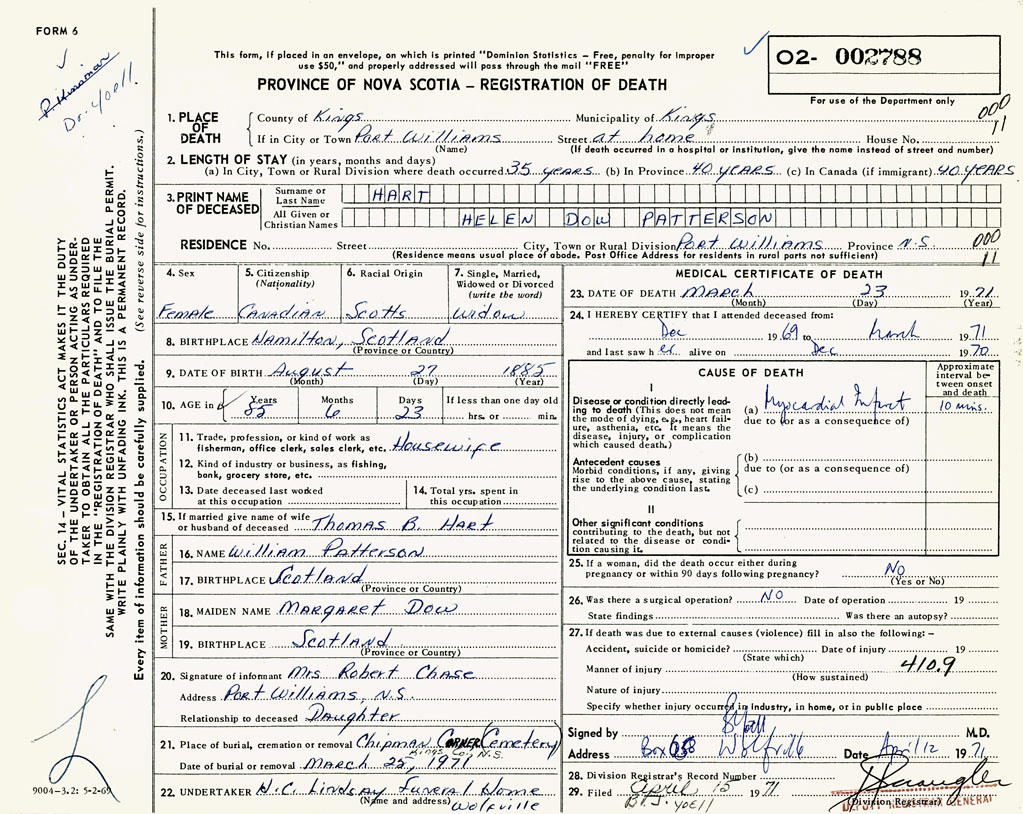 FORM 6
P. Kinsman
Dr. Yoell
This form, if placed in an envelope, on which is printed "Dominion Statistics - Free, penalty for improper
use $50," and properly addressed will pass through the mail "FREE"
PROVINCE OF NOVA SCOTIA - REGISTRATION OF DEATH
02- 002788
For use of the Department only
000
11
1. PLACE OF DEATH
County of Kings Municipality of Kings
If in City or Town Port Williams Street at home House No.
(Name) (If death occurred in a hospital or institution, give the name instead of street and number)
2. LENGTH OF STAY (in years, months and days)
(a) In City, Town or Rural Division where death occurred 35 years (b) In Province 40 years (c) In Canada (if immigrant) 40 years
3. PRINT NAME OF DECEASED
Surname or Last Name HART
All Given or Christian Names HELEN DOW PATTERSON
RESIDENCE No. Street City, Town or Rural Division Port Williams Province N.S.
000
11
(Residence means usual place of abode. Post Office Address for residents in rural parts not sufficient)
4. Sex Female
5. Citizenship (Nationality) Canadian
6. Racial Origin Scotts
7. Single, Married, Widowed or Divorced (write the word) Widow
8. BIRTHPLACE Hamilton, Scotland
(Province or Country)
9. DATE OF BIRTH August 27 1885
(Month) (Day) (Year)
10. AGE in Years 85 Months 6 Days 23 If less than one day old hrs. or min.
OCCUPATION
11. Trade, profession, or kind of work as
fisherman, office clerk, sales clerk, etc. Housewife
12. Kind of industry or business, as fishing,
bank, grocery store, etc.
13. Date deceased last worked
at this occupation
14. Total yrs. spent in
this occupation
15. If married give name of wife
or husband of deceased Thomas B. Hart
FATHER
16. NAME William Patterson
17. BIRTHPLACE Scotland
(Province or Country)
MOTHER
18. MAIDEN NAME Margaret Dow
19. BIRTHPLACE Scotland
(Province or Country)
20. Signature of informant Mrs Robert Chase
Address Port Williams, N.S.
Relationship to deceased Daughter
21. Place of burial, cremation or removal Chipman Corner (Cemetery)
Kings Co., N.S.
Date of burial or removal March 25, 1971
22. UNDERTAKER H.C. Lindsay Funeral Home
(Name and address) Wolfville
MEDICAL CERTIFICATE OF DEATH
23. DATE OF DEATH March 23 1971
(Month) (Day) (Year)
24. I HEREBY CERTIFY that I attended deceased from:
Dec 1969 to March 1971
and last saw her alive on Dec 1970
CAUSE OF DEATH
Approximate interval between onset and death
I
Disease or condition directly leading to death (This does not mean the mode of dying, e.g., heart failure, asthenia, etc. It means the disease, injury, or complication which caused death.)
(a) Myocardial Infarct 10 mins.
due to (or as a consequence of)
Antecedent causes
Morbid conditions, if any, giving rise to the above cause, stating the underlying condition last.
(b)
due to (or as a consequence of)
(c)
II
Other significant conditions
contributing to the death, but not
related to the disease or condition causing it.
25. If a woman, did the death occur either during
pregnancy or within 90 days following pregnancy? No
(Yes or No)
26. Was there a surgical operation? NO Date of operation 19
State findings Was there an autopsy?
27. If death was due to external causes (violence) fill in also the following: -
Accident, suicide or homicide? Date of injury 19
(State which)
Manner of injury 410.9
(How sustained)
Nature of injury
Specify whether injury occurred in industry, in home, or in public place
Signed by B Yoell M.D.
Address Box 658 Wolfville Date April 12 1971
28. Division Registrar's Record Number
29. Filed April 15 1971
B.T.J. Yoell
(Division Registrar)
DEPUTY REGISTRAR GENERAL
SEC. 14 - VITAL STATISTICS ACT MAKES IT THE DUTY
OF THE UNDERTAKER OR PERSON ACTING AS UNDER-
TAKER TO OBTAIN ALL THE PARTICULARS REQUIRED
IN THE "REGISTRATION OF DEATH" AND TO FILE THE
SAME WITH THE DIVISION REGISTRAR WHO SHALL ISSUE THE BURIAL PERMIT.
WRITE PLAINLY WITH UNFADING INK. THIS IS A PERMANENT RECORD.
Every item of information should be carefully supplied. (See reverse side for instructions.)
9004-3.2: 5-2-69